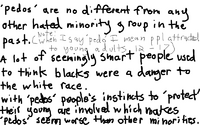 'pedos' are no different from any
other hated minority group in the
past. (note when I say 'pedo' I mean ppl attracted
to young adults, 12-17)
A lot of seemingly smart people used
to think blacks were a danger to
the white race.
with 'pedos' people's instincts to 'protect'
their young are involved which makes
'pedos' seem worse than other minorities.